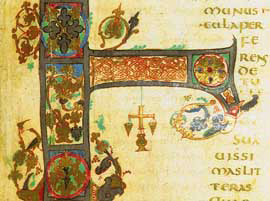 MUNUS
CULAPER
FE
RENS
DE
TU
SUA
UISSI
MASLIT
TERAS